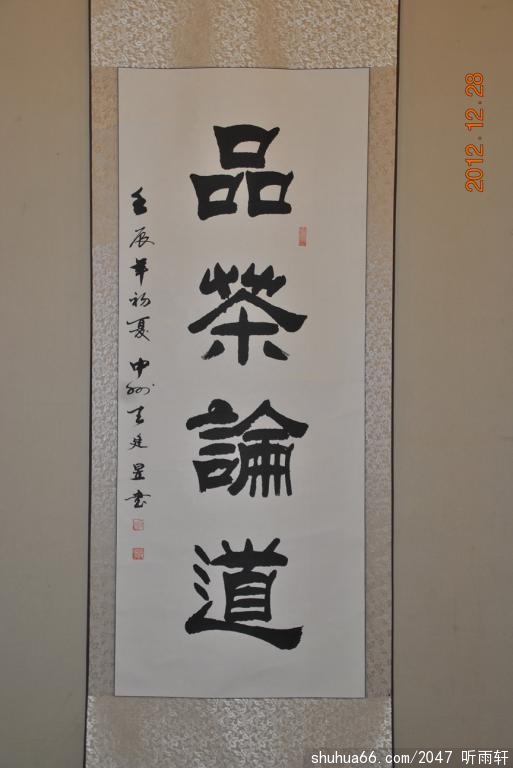 品茶論道
壬辰年初夏中州王廷昱书
2012.12.28
shuhua66.com/2047 听雨轩